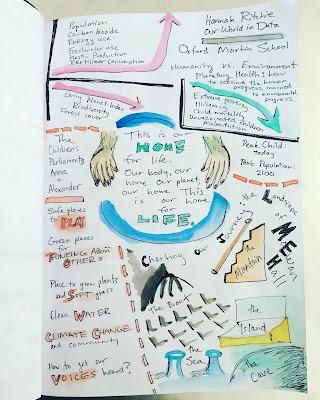 Population
Carbon Dioxide
Energy use
Fertiliser use
Plastic Production
Fertiliser Consumption
Hannah Ritchie
Our World in Data
Oxford Martin School
Humanity vs. Environment
Planetary Health: how
to continue the human
progress, married
to environmental
progress.
Living Planet Index
Biodiversity
Forest cover
Extreme poverty
Illiteracy
Child mortality
Unvaccinated children
malnutrition
Peak Child:
today
Peak Population:
2100
The
Children's
Parliament
Anna
+
Alexander
This is our
HOME
for life.
Our body, our
home. Our planet,
our home. This
is our home
for
LIFE.
Safe places
to PLAY
Green places
for
THINKING ABOUT
OTHERS
Place to grow plants
and Soft grass
Clean WATER
CLIMATE CHANGE
and community
How to get our
VOICES heard?
Charting our Journey
The Landscape
of
the Mountain
The Boat
the
Island
the
Sea
the Cave